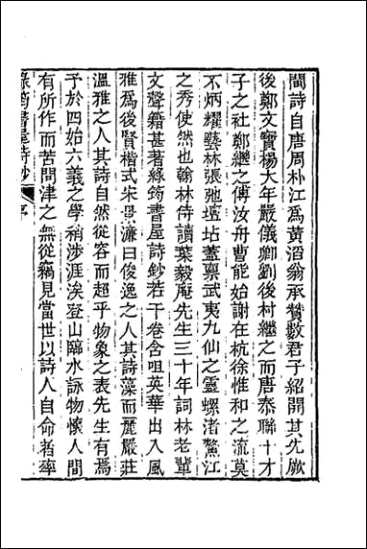 閩詩自唐周朴江爲黃滔翁承贊數君子紹開其先厥
後鄭文寶楊大年嚴儀卿劉後村繼之而唐泰聯十才
子之社鄭繼之傅汝舟曹能始謝在杭徐惟和之流莫
不炳耀藝林張弛壇坫蓋稟武夷九仙之靈螺渚鰲江
之秀使然也翰林侍讀葉毅庵先生三十年詞林老輩
文聲籍甚著綠筠書屋詩鈔若干卷含咀英華出入風
雅爲後賢楷式宋景濂曰俊逸之人其詩藻而麗嚴莊
溫雅之人其詩自然從容而超乎物象之表先生有焉
予於四始六義之學稍涉涯涘登山臨水詠物懷人間
有所作而苦問津之無從竊見當世以詩人自命者率
綠筠書屋詩鈔 序